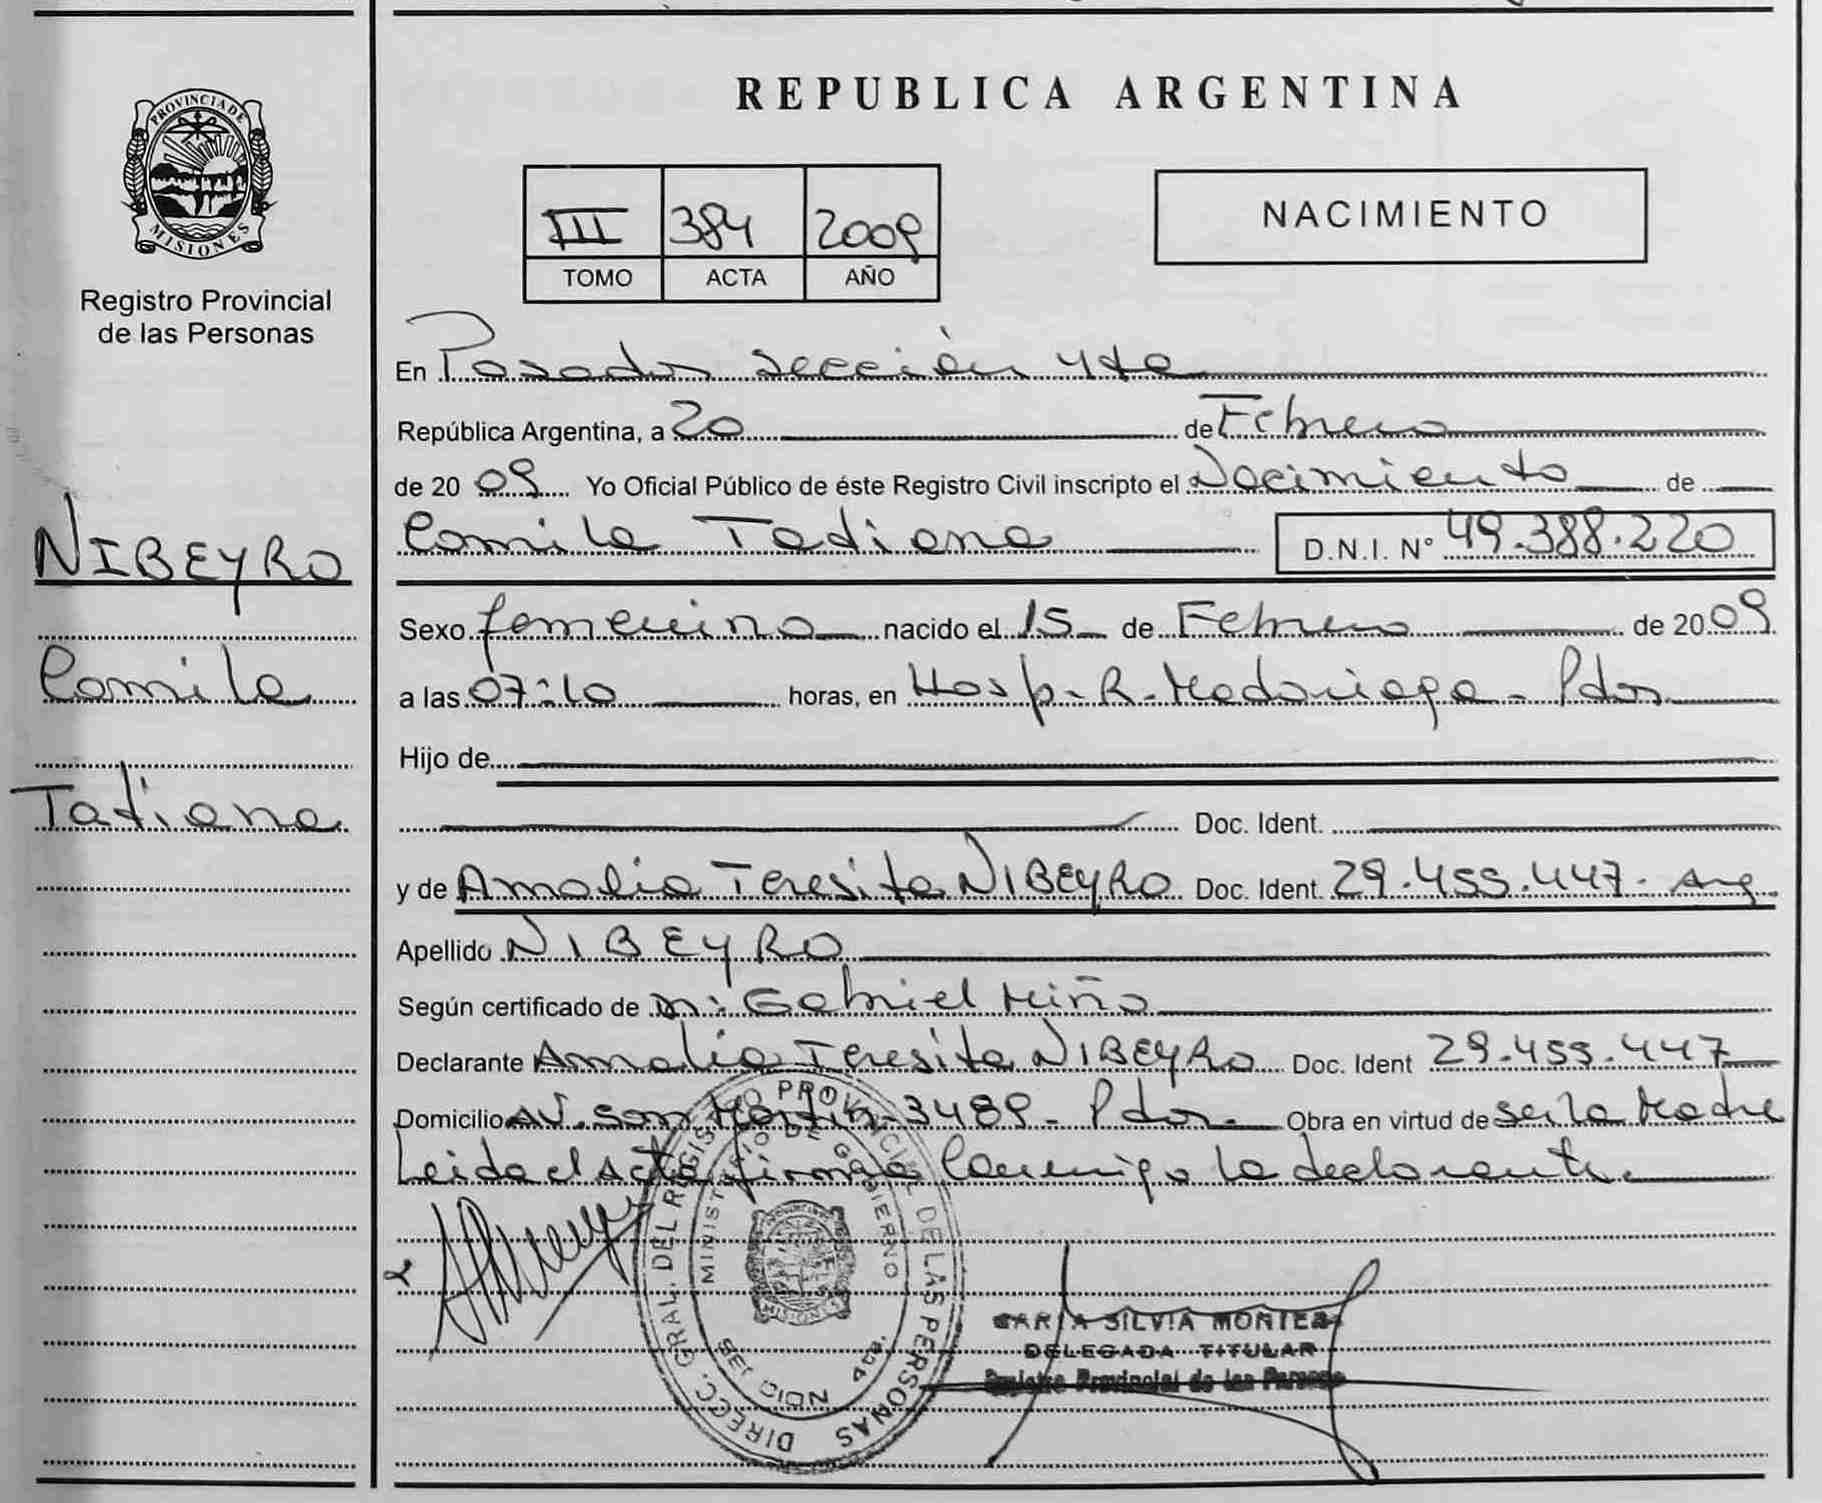 REPUBLICA ARGENTINA
PROVINCIA DE
MISIONES
Registro Provincial
de las Personas
III 384 2009
TOMO ACTA AÑO
NACIMIENTO
En Posadas sección 4ta
República Argentina, a 20 de Febrero
de 2009 Yo Oficial Público de éste Registro Civil inscripto el Nacimiento de
Camila Tatiana D.N.I. N° 49.388.220
NIBEYRO
Camila
Tatiana
Sexo femenino nacido el 15 de Febrero de 2009
a las 07:10 horas, en Hosp. R. Madariaga - Pdas.
Hijo de
Doc. Ident.
y de Amalia Teresita NIBEYRO Doc. Ident. 29.455.447. Arg.
Apellido NIBEYRO
Según certificado de Gabriel Miño
Declarante Amalia Teresita NIBEYRO Doc. Ident 29.455.447
Domicilio AV. San Martin 3489 - Pdas. Obra en virtud de ser la Madre
Leida el Acta firma conmigo la declarante.
DIRECC. GRAL. DEL REGISTRO PROVINCIAL DE LAS PERSONAS
MINISTERIO DE GOBIERNO
MISIONES
SECCION 4ta.
SILVIA MONTES
DELEGADA TITULAR
Registro Provincial de las Personas